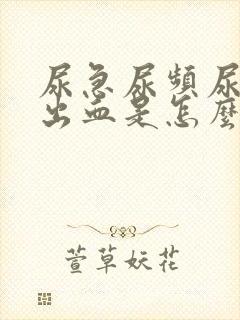 尿急尿頻尿
出血是怎麼
萱草妖花